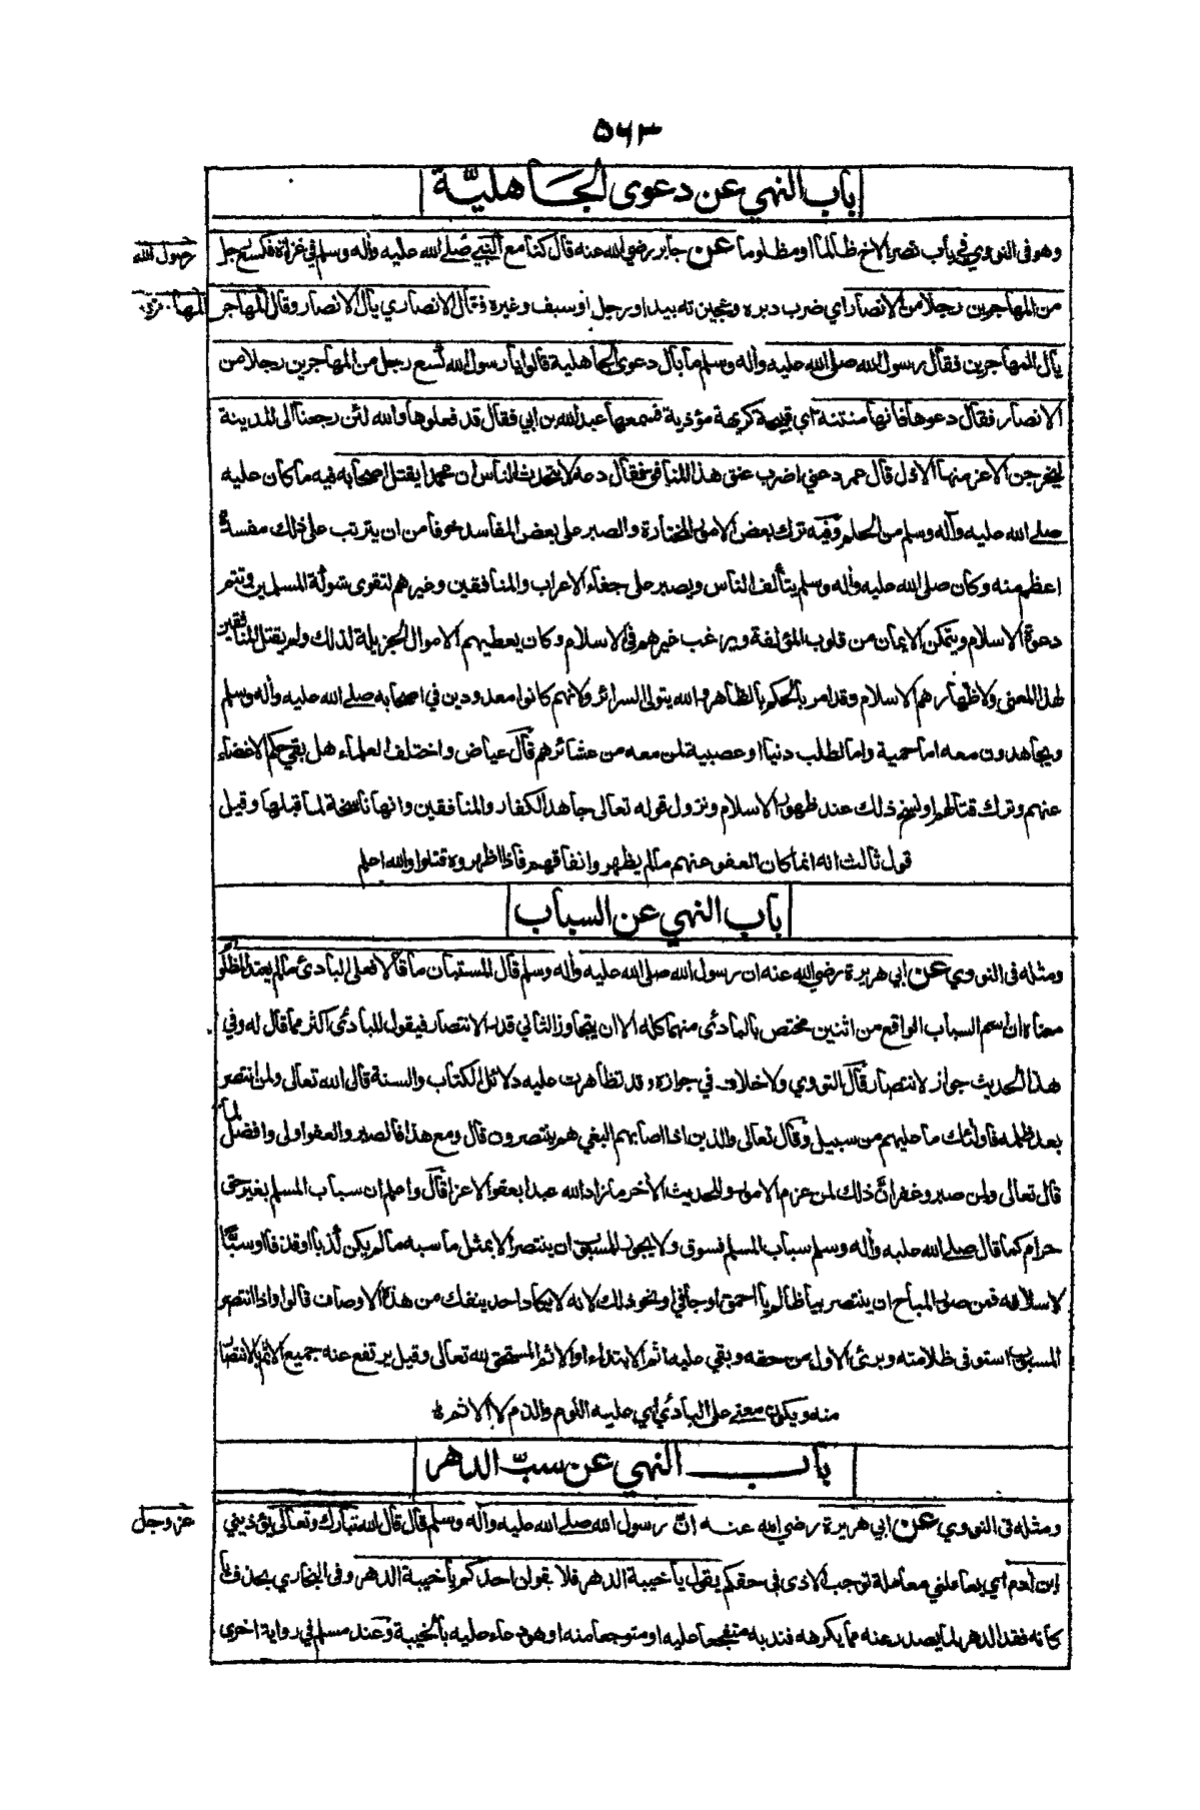 ٥٦٣
باب النهي عن دعوى الجاهلية
وهو في النووي في باب نصر الاخ ظالما او مظلوما عن جابر رضي الله عنه قال كنا مع النبي صلى الله عليه وآله وسلم في غزاة فكسع رجل
رسول الله
من المهاجرين رجلا من الانصار اي ضرب دبره وعجيزته بيد او رجل او سيف وغيره فقال الانصاري يال الانصار وقال المهاجر
يال المهاجرين فقال رسول الله صلى الله عليه وآله وسلم ما بال دعوى الجاهلية قالوا يا رسول الله كسع رجل من المهاجرين رجلا من
الانصار فقال دعوها فانها منتنة اي قبيحة كريهة مؤذية فسمعها عبد الله بن ابي فقال قد فعلوها والله لئن رجعنا الى المدينة
ليخرجن الاعز منها الاذل قال عمر دعني اضرب عنق هذا المنافق فقال دعه لا يتحدث الناس ان محمدا يقتل اصحابه فيه ما كان عليه
صلى الله عليه وآله وسلم من الحلم وفيه ترك بعض الامور المختارة والصبر على بعض المفاسد خوفا من ان يترتب على ذلك مفسدة
اعظم منه وكان صلى الله عليه وآله وسلم يتألف الناس ويصبر على جفاء الاعراب والمنافقين وغيرهم لتقوى شوكة المسلمين وتتم
دعوة الاسلام ويتمكن الايمان من قلوب المؤلفة ويرغب غيرهم في الاسلام وكان يعطيهم الاموال الجزيلة لذلك ولم يقتل المنافقين
لهذا المعنى ولاظهارهم الاسلام وقد امر بالحكم بالظاهر والله يتولى السرائر ولانهم كانوا معدودين في اصحابه صلى الله عليه وآله وسلم
ويجاهدون معه اما حمية واما لطلب دنيا او عصبية لمن معه من عشائرهم قال عياض واختلف العلماء هل بقي حكم الاغضاء
عنهم وترك قتالهم او نسخ ذلك عند ظهور الاسلام ونزول قوله تعالى جاهد الكفار والمنافقين وانها ناسخة لما قبلها وقيل
قول ثالث انه انما كان العفو عنهم ما لم يظهروا نفاقهم فاذا اظهروه قتلوا والله اعلم
باب النهي عن السباب
ومثله في النووي عن ابي هريرة رضي الله عنه ان رسول الله صلى الله عليه وآله وسلم قال المستبان ما قالا فعلى البادئ ما لم يعتد المظلوم
معناه ان اسم السباب الواقع من اثنين مختص بالبادئ منهما كله الا ان يتجاوز الثاني قدر الانتصار فيقول للبادئ اكثر مما قال له وفي
هذا الحديث جواز الانتصار قال النووي ولا خلاف في جوازه وقد تظاهرت عليه دلائل الكتاب والسنة قال الله تعالى ولمن انتصر
بعد ظلمه فاولئك ما عليهم من سبيل وقال تعالى والذين اذا اصابهم البغي هم ينتصرون قال ومع هذا فالصبر والعفو اولى وافضل لما
قال تعالى ولمن صبر وغفر ان ذلك لمن عزم الامور وللحديث الآخر ما زاد الله عبدا بعفو الا عزا قال واعلم ان سباب المسلم بغير حق
حرام كما قال صلى الله عليه وآله وسلم سباب المسلم فسوق ولا يجوز للمسبوب ان ينتصر الا بمثل ما سبه ما لم يكن كذبا او قذفا او سبا
لاسلافه فمن صور المباح ان ينتصر بيا ظالم يا احمق او جافي او نحو ذلك لانه لا يكاد احد ينفك من هذه الاوصاف قالوا واذا انتصر
المسبوب استوفى ظلامته وبرئ الاول من حقه وبقي عليه اثم الابتداء او الاثم المستحق لله تعالى وقيل يرتفع عنه جميع الاثم بالانتصار
منه ويكون معنى على البادئ اي عليه اللوم والذم لا الاثم
باب النهي عن سب الدهر
ومثله في النووي عن ابي هريرة رضي الله عنه ان رسول الله صلى الله عليه وآله وسلم قال قال الله تبارك وتعالى يؤذيني
عز وجل
ابن آدم اي يعاملني معاملة توجب الاذى في حقكم يقول يا خيبة الدهر فلا يقولن احدكم يا خيبة الدهر وفي البخاري بحذف يا
كانه فقد الدهر لما يصدر عنه مما يكرهه فندبه متفجعا عليه او متوجعا منه او هو دعاء عليه بالخيبة وعند مسلم في رواية اخرى